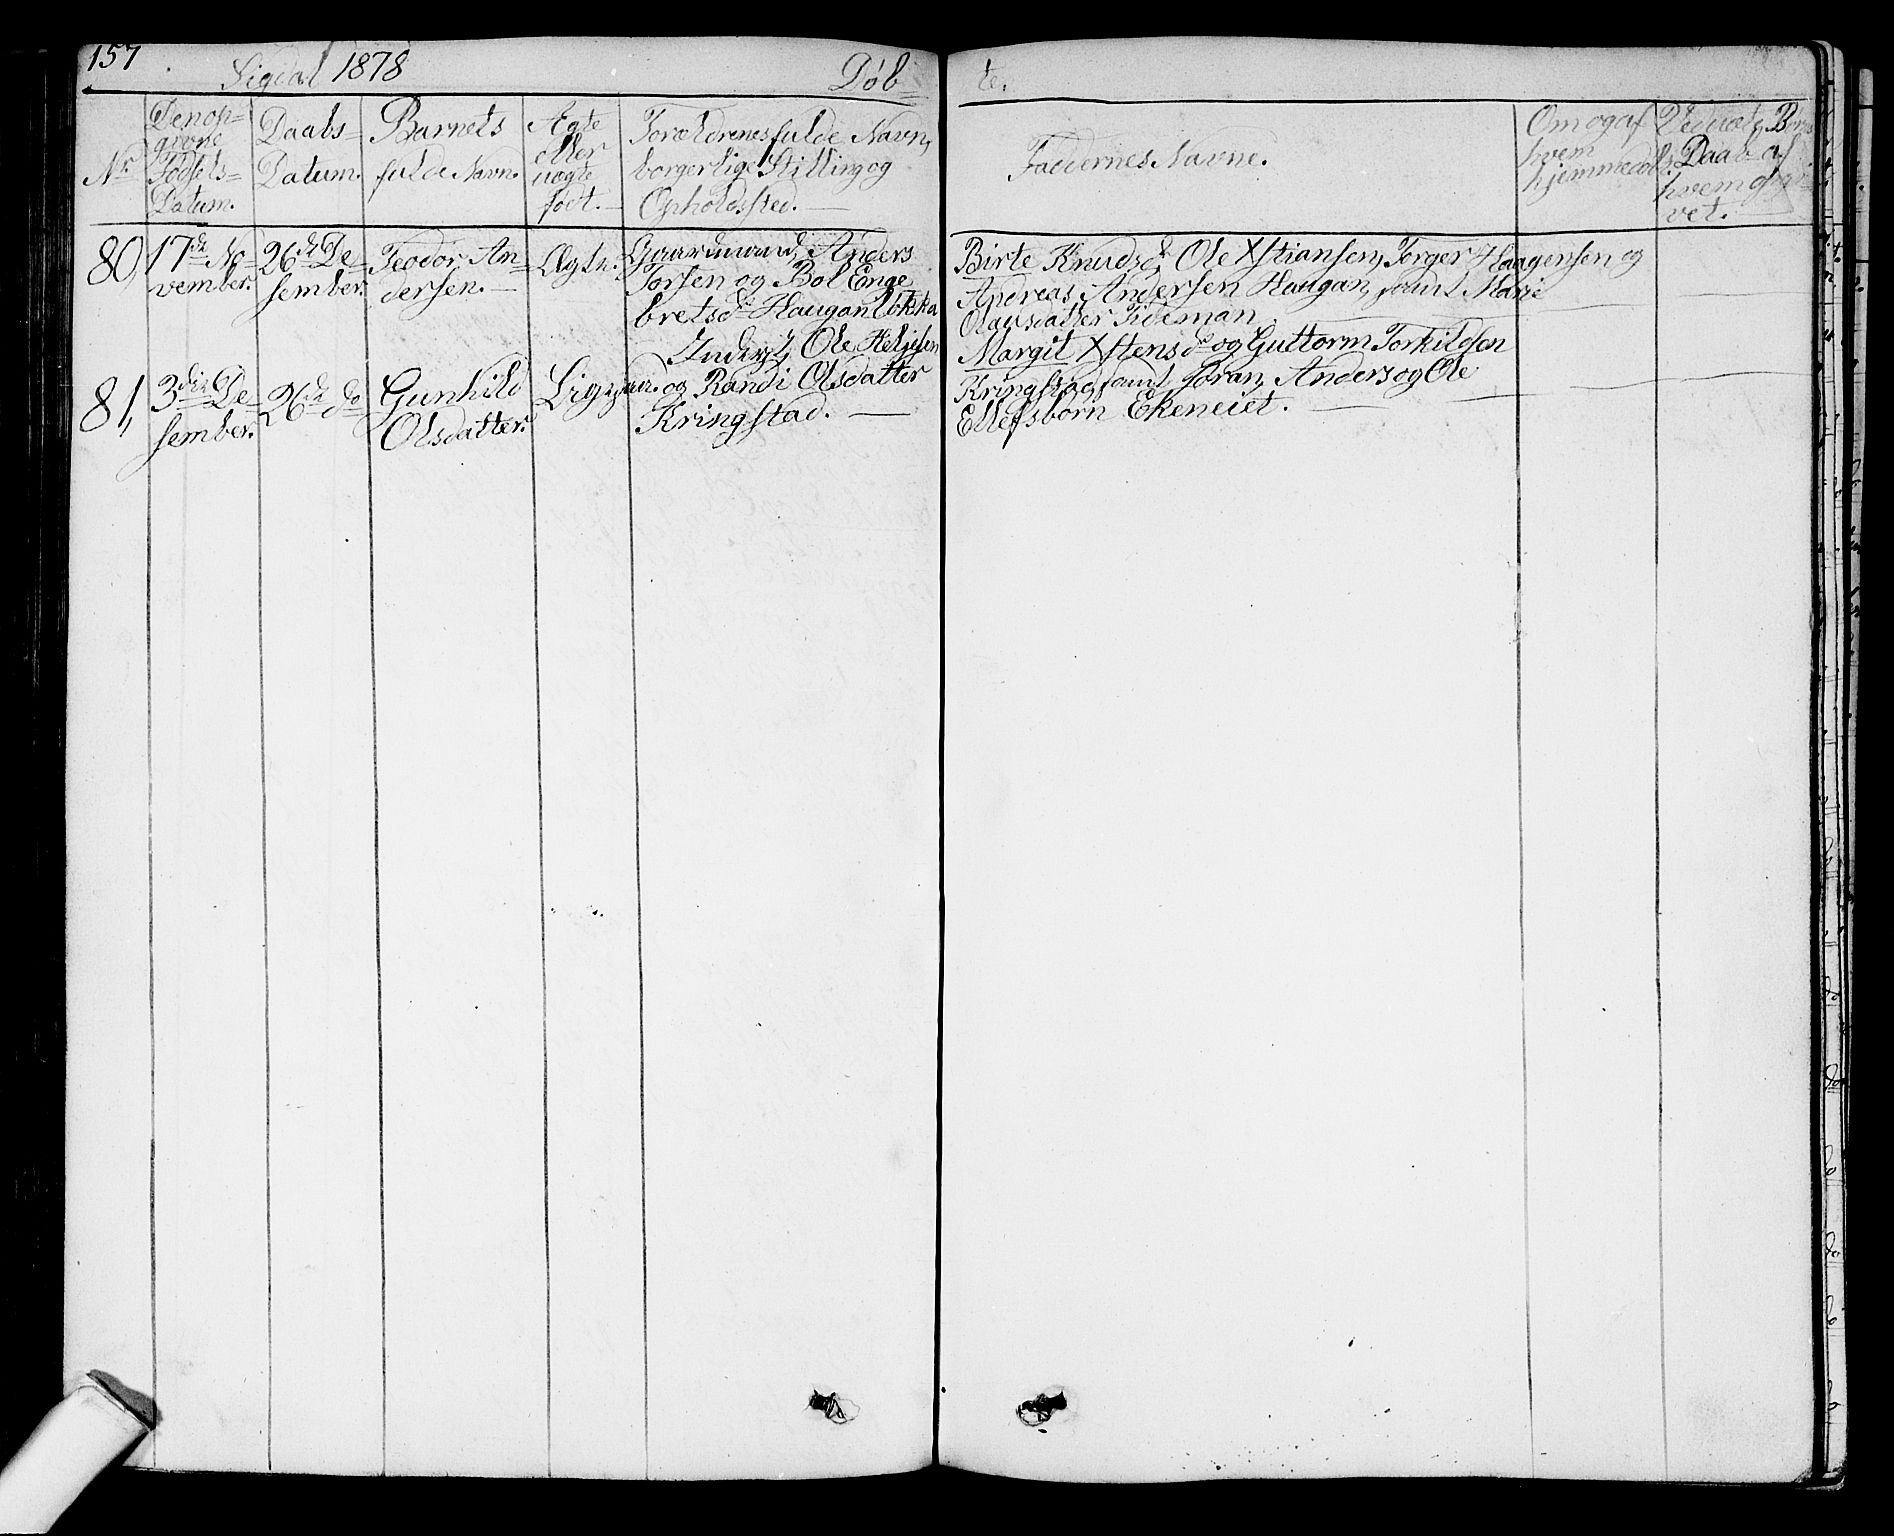 157
Sigdal 1878 Døb=
te.
Nr.
Den op=
givne
Fødsels=
Datum.
Daabs=
Datum.
Barnets
fulde Navn.
Ægte
eller
uægte
født.
Forældrenes fulde Navn,
borgerlige Stilling og
Opholdssted.
Faddernes Navne.
Om og af
hvem
hjemmedøbt.
Daab af
vet.
80,
17de No=
vember.
26de De=
sember.
Teodor An=
dersen.
Ægte.
Gaardmand, Anders
Torsen og Bol Enge
bretsdr Haugan Løkka
Birte Knudsdr Ole Xstiansen, Torger Haagensen og
Andreas Andersen Haugan, samt Marie
Olausdatter Tideman.
81,
3die De=
sember.
26de do
Gunhild
Olsdatter.
Ligesaa.
Inderst, Ole Heljesen
og Randi Olsdatter
Kringstad.
Margit Xstensdr og Guttorm Torkildsen
Kringstad, samt Jøran, Anders og Ole
Ellefsbørn Ekeneiet.